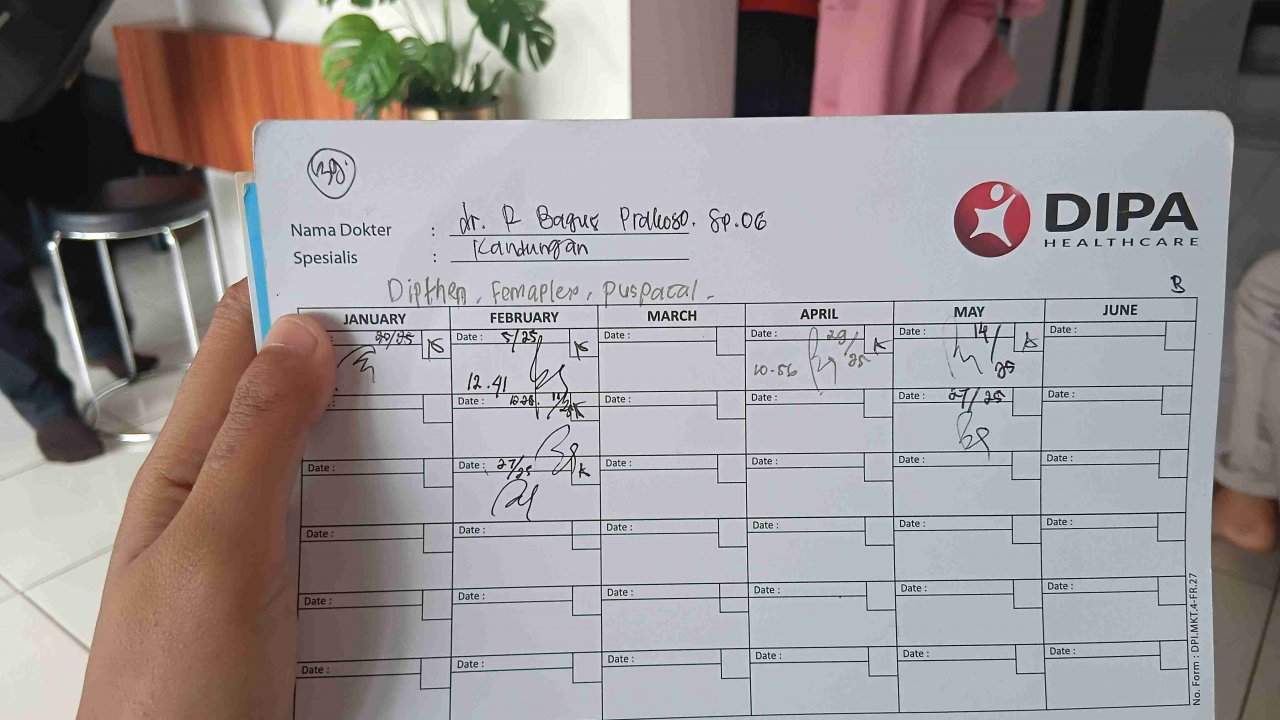 DIPA
HEALTHCARE
Nama Dokter : dr. R Bagus Prakoso. Sp.OG
Spesialis : Kandungan
Dipthen, Femaplex, Puspacal.
B
JANUARY FEBRUARY MARCH APRIL MAY JUNE
30/25 K Date : 5/25 K Date : Date : 29/25 K Date : 14/25 K Date :
12.41 10.56
Date : Date : Date : Date : 27/25 Date :
Date : Date : 27/25 K Date : Date : Date : Date :
Date : Date : Date : Date : Date : Date :
Date : Date : Date : Date : Date : Date :
Date : Date : Date : Date : Date : Date :
No. Form : DPI.MKT.4-FR.27